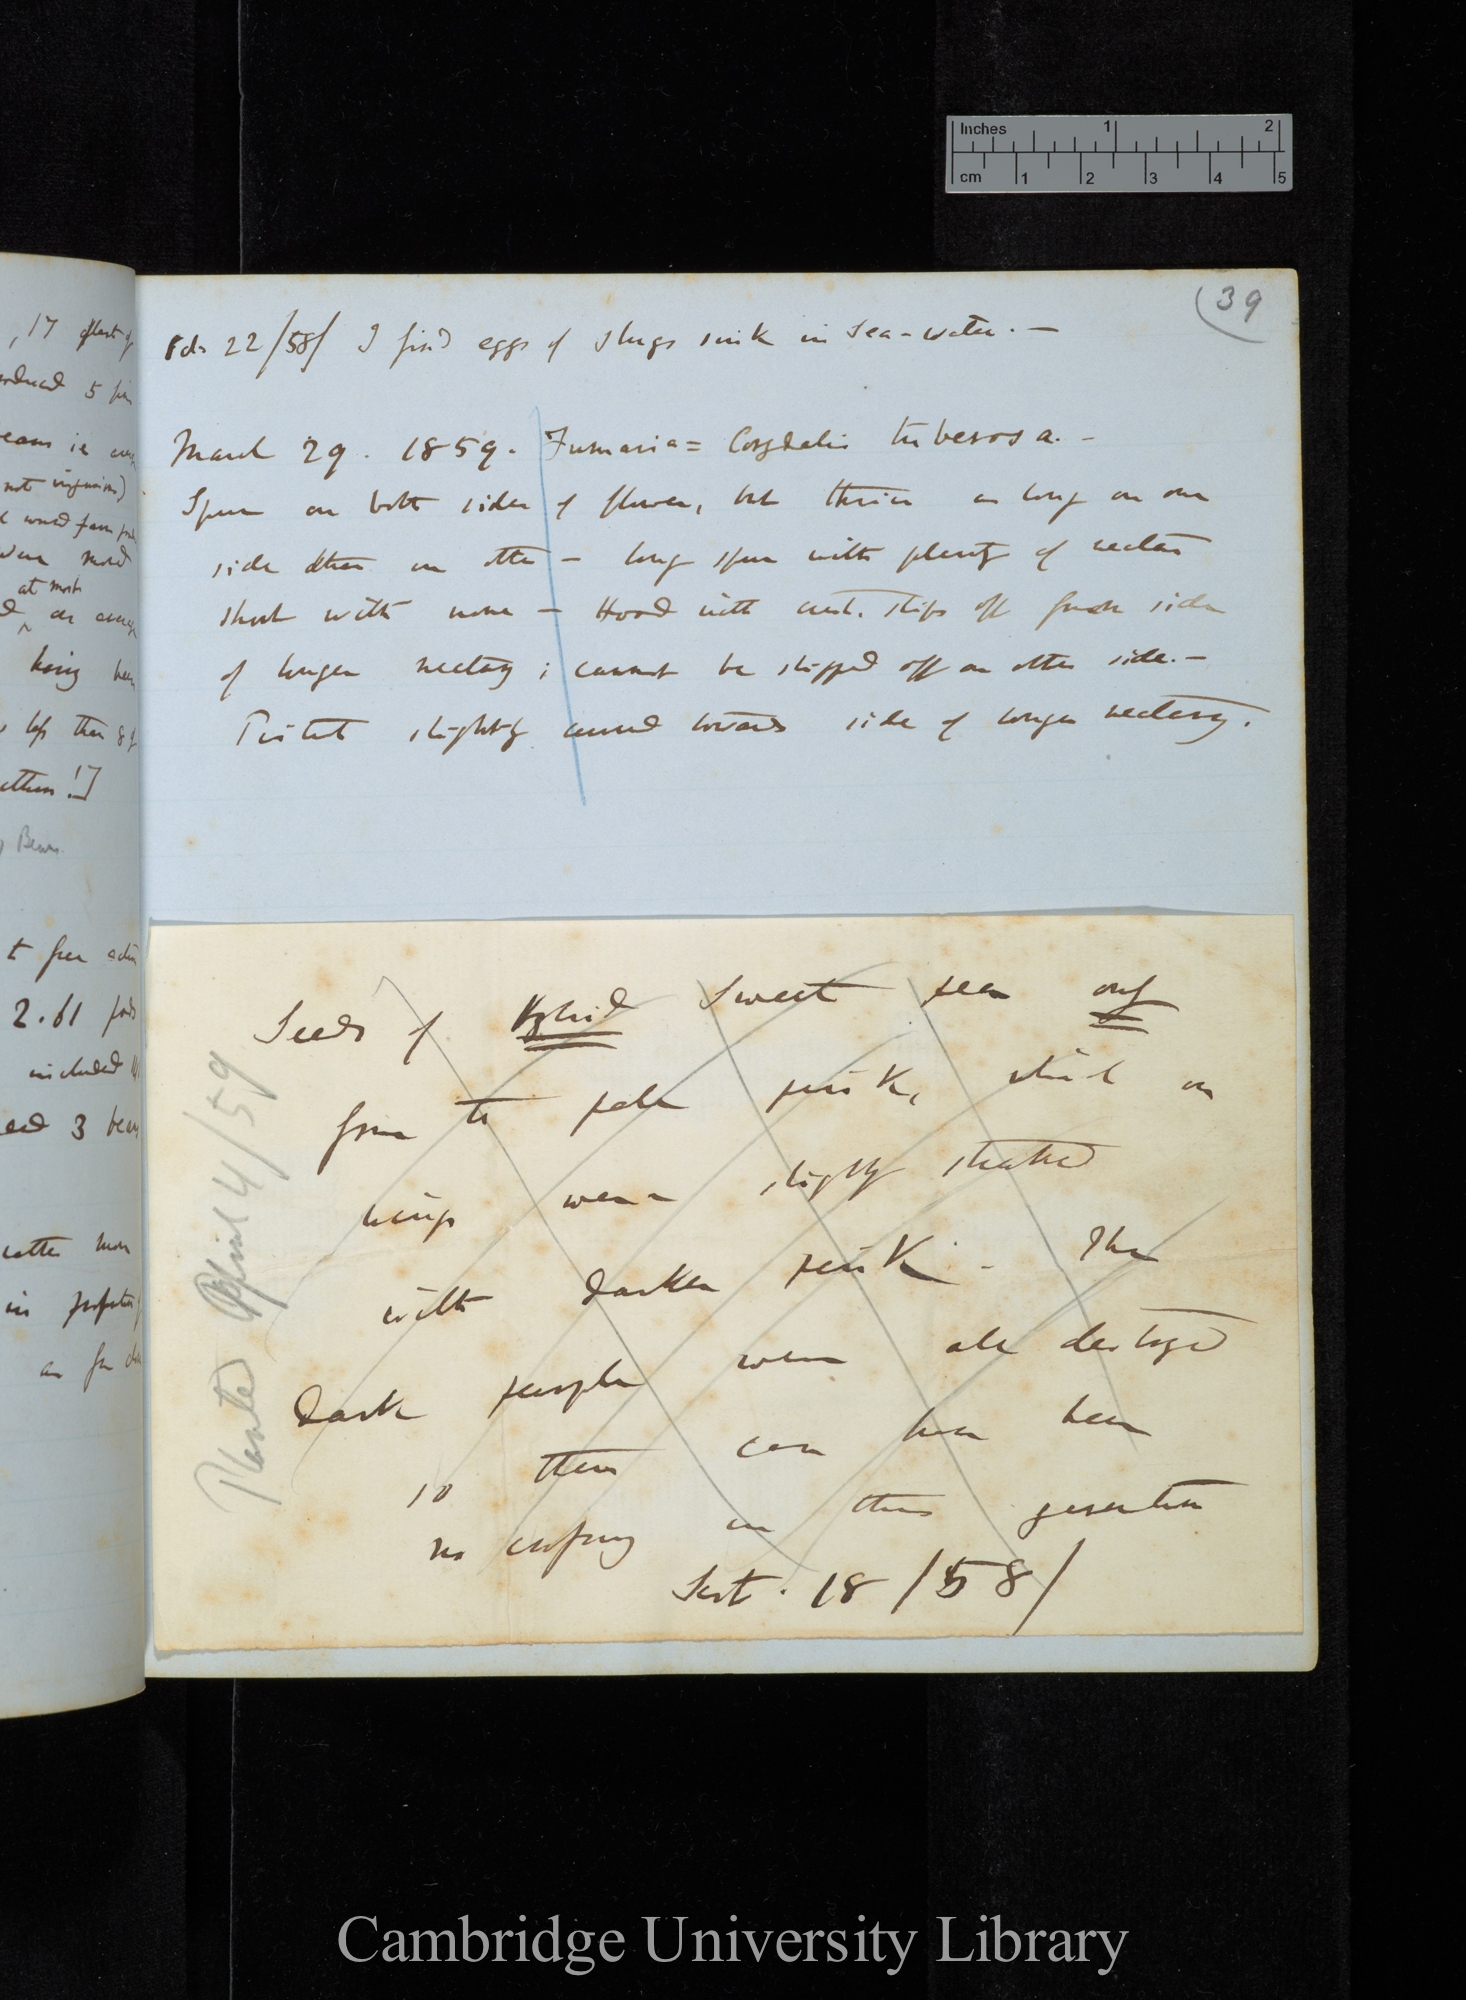 39
Feb 22/58/ I find eggs of slugs sink in Sea-water. —
March 29. 1859. Fumaria = Corydalis tuberosa. —
Spur on both sides of flower, but thrice as long on one
side than on other — long spur with plenty of nectar
short with none — Hood with slips off from side
of longer nectary; cannot be slipped off on other side. —
Pistil slightly curved towards side of longer nectary.
Seeds of Hybrid Sweet pea only
from the pale pink, which on
wings were slightly streaked
with darker pink. — The
dark purple were all destroyed
so there can have been
no crossing in this generation
Sept. 18/58/
Planted April 4/59
, 17 plants of
produced 5
beans ie
not
at most
being been
less than 8
others!]
Beans
2.61 pods
included
and 3 beans
rather more
in
as far
Inches 1 2
cm 1 2 3 4 5
Cambridge University Library